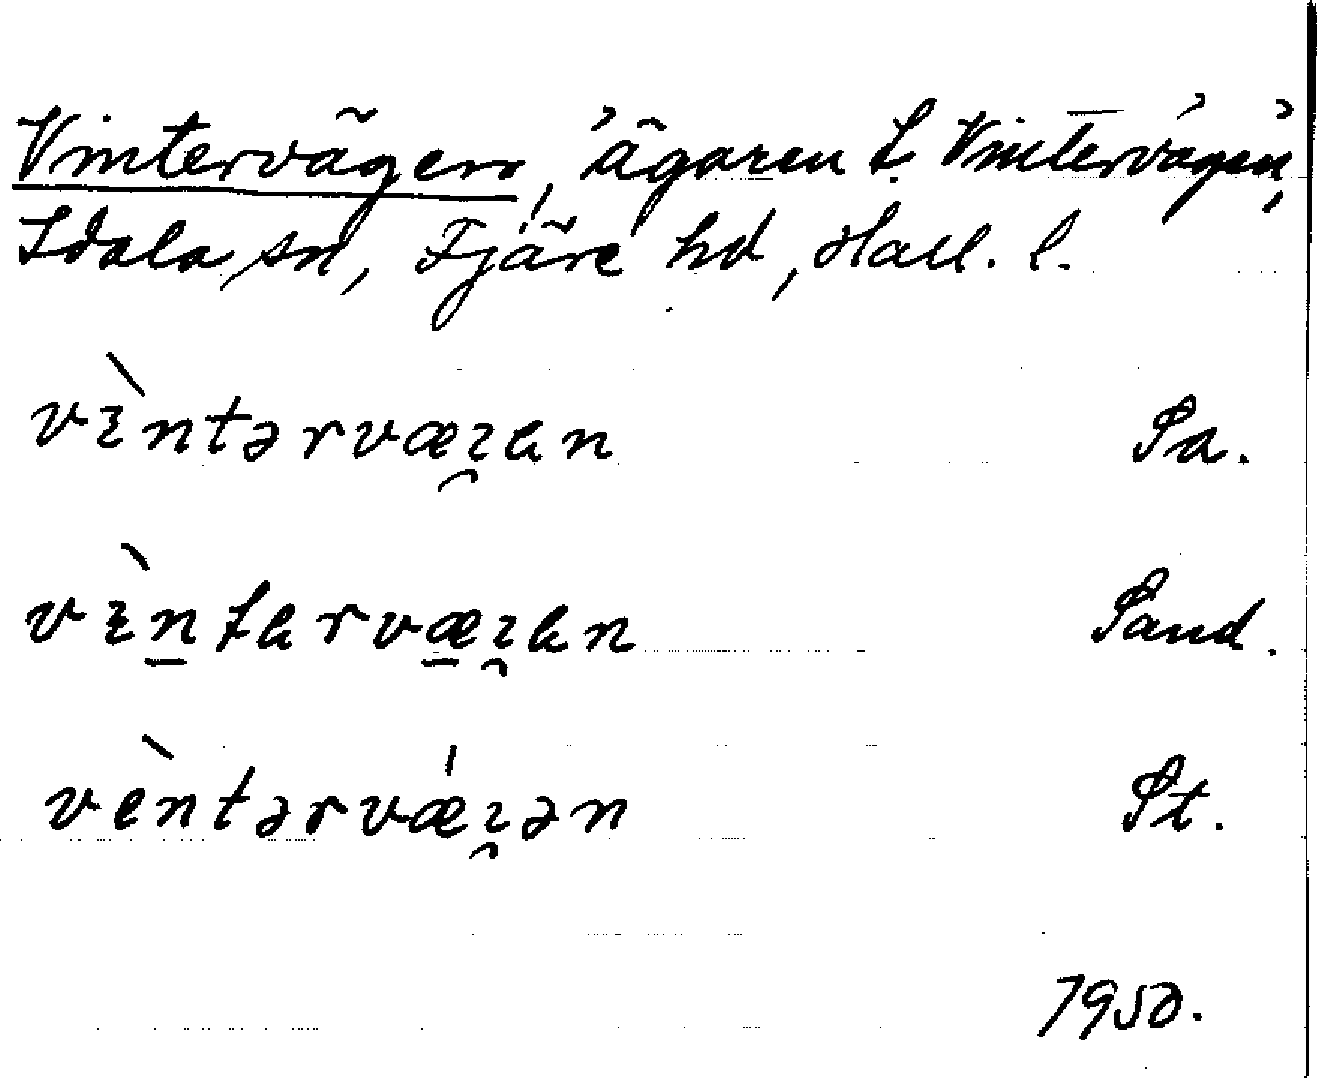 Vintervägen, 'ägaren t. Vintervägen',
Idala sn, Fjäre hd, Hall. l.
vɪ̀ntərvæɪ̯en Sa.
vɪ̀n̠tervæ̠ɪ̯en Sand.
vèntərvǽɪ̯ən St.
1950.